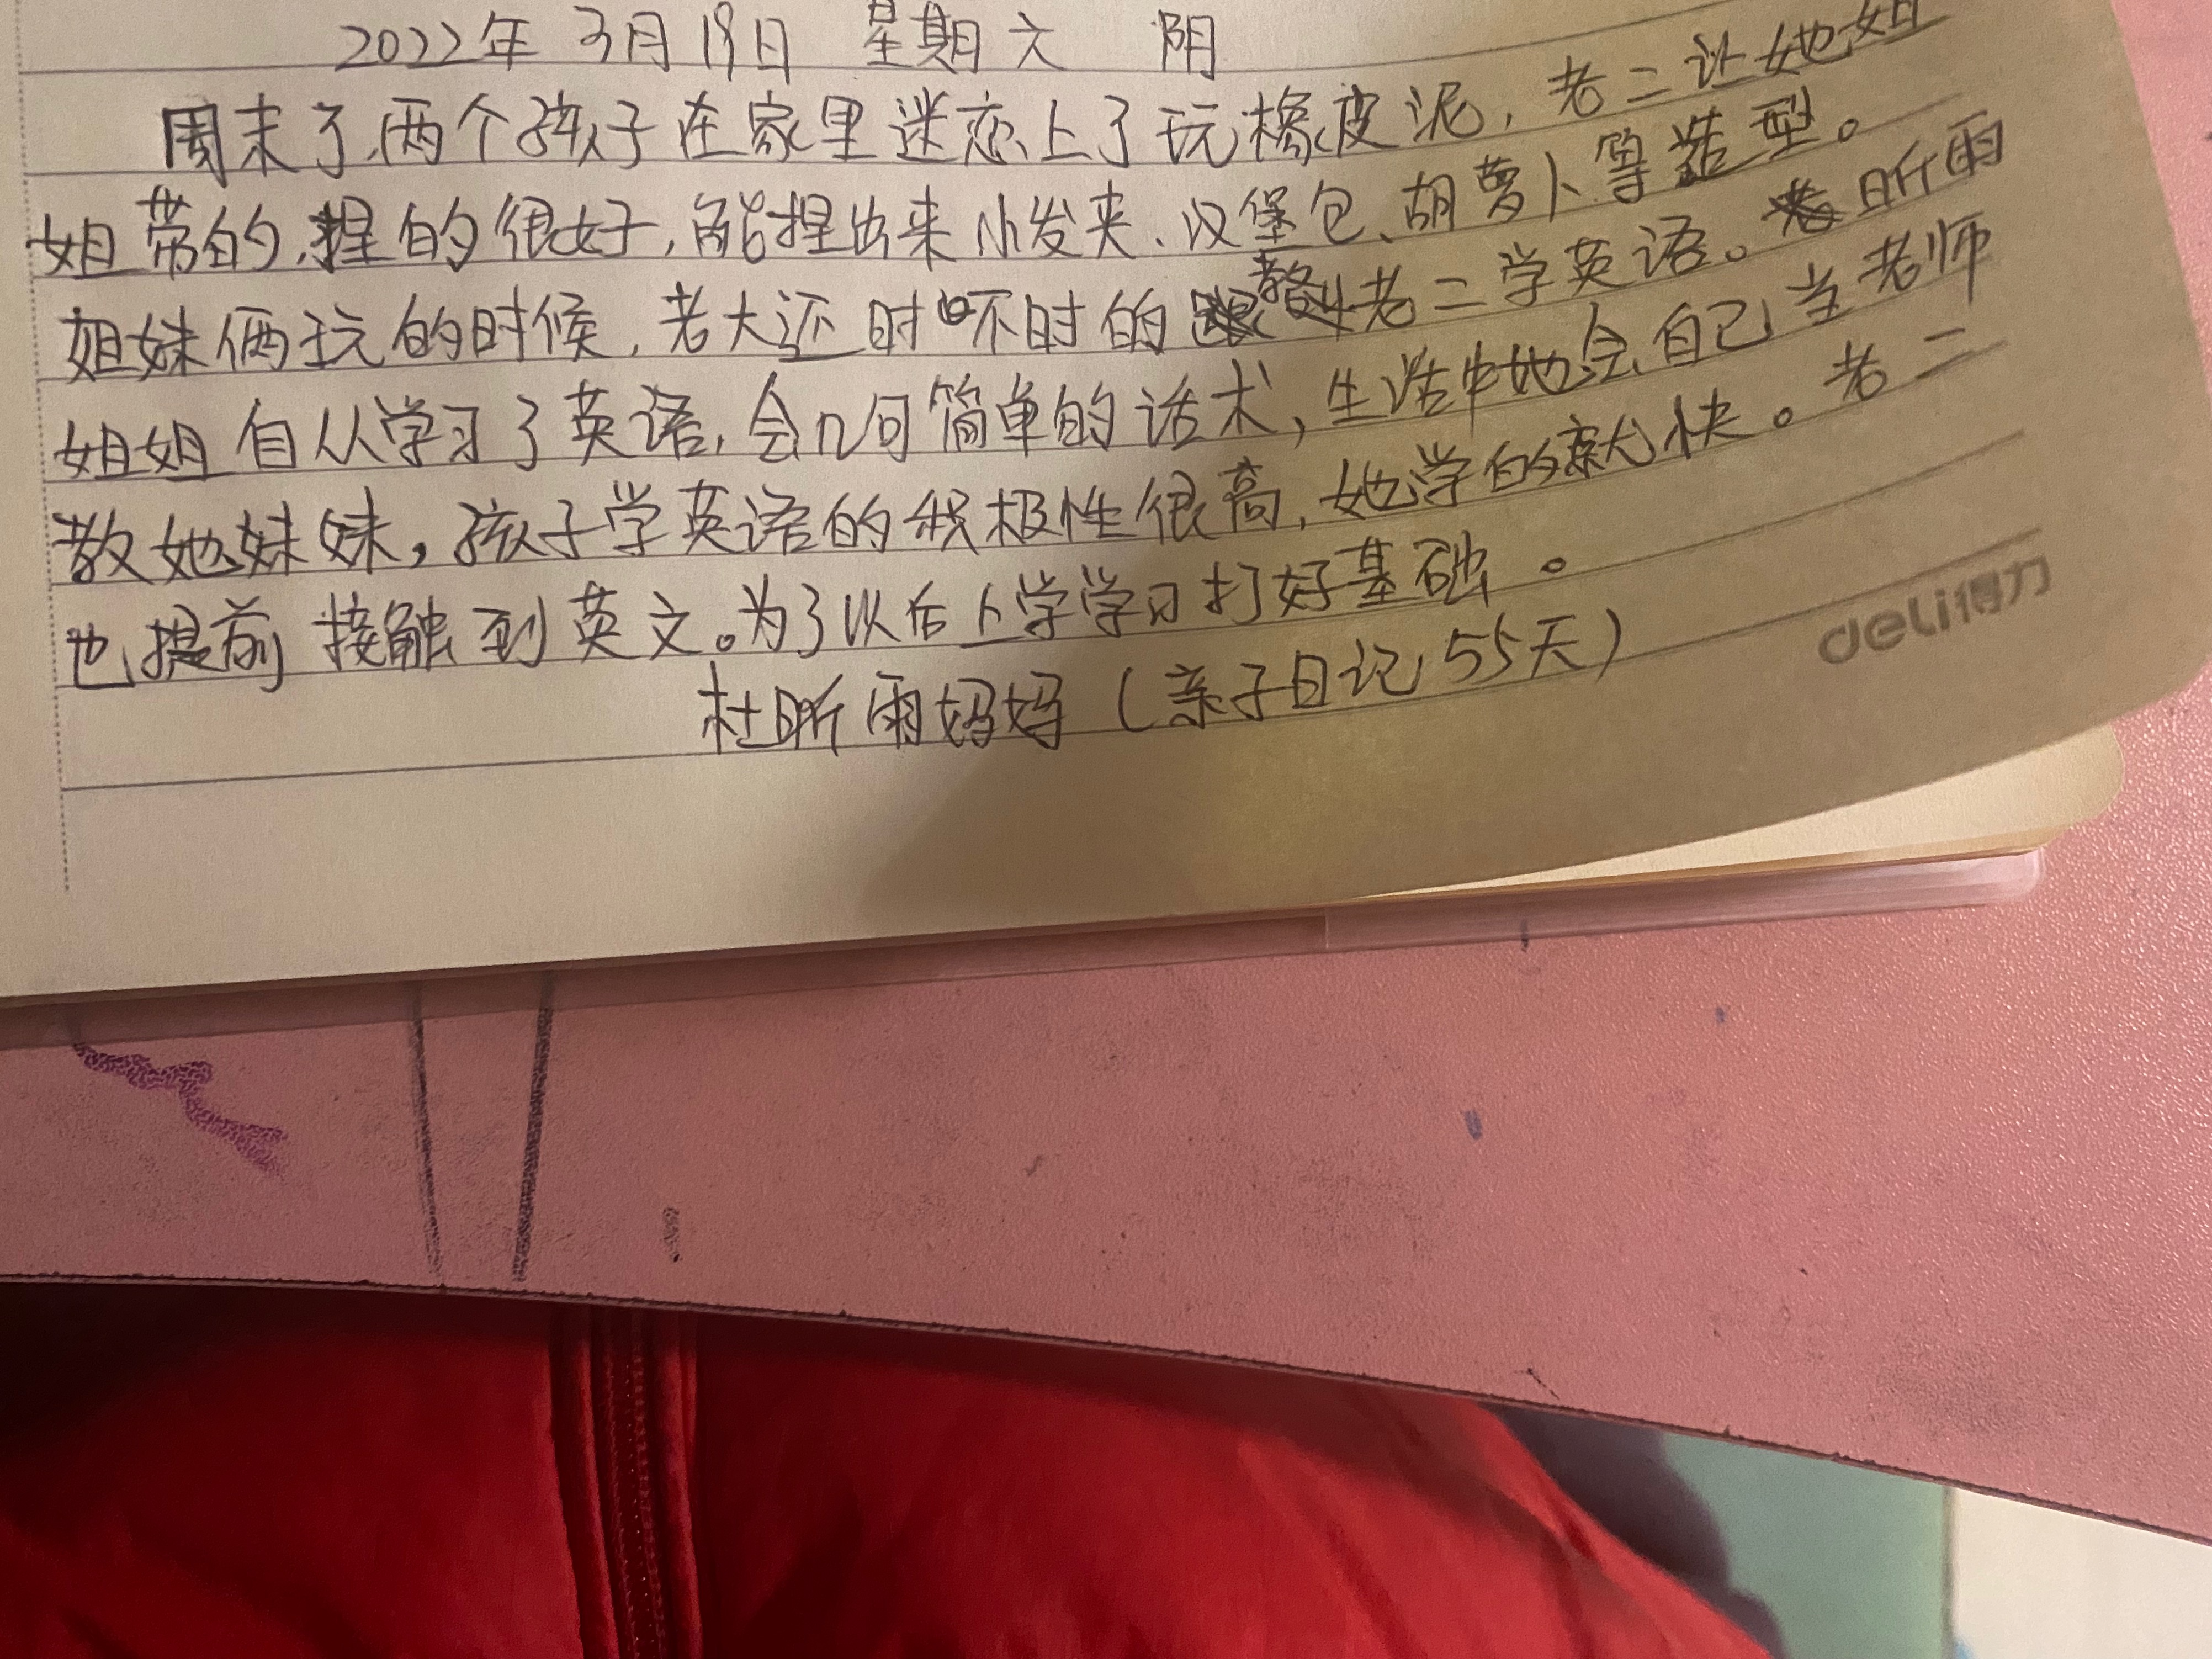 2022年 3月19日 星期六 阴
周末了,两个孩子在家里迷恋上了玩橡皮泥,老二让她姐
姐带的,捏的很好,能捏出来小发夹、汉堡包、胡萝卜等造型。
姐妹俩玩的时候,老大还时不时的教老二学英语。昕雨
姐姐自从学习了英语,会几句简单的话术,生活中她会自己当老师
教她妹妹,孩子学英语的积极性很高,她学的就快。老二
也提前接触到英文。为了以后上学学习打好基础。
杜昕雨妈妈(亲子日记55天)
deli得力